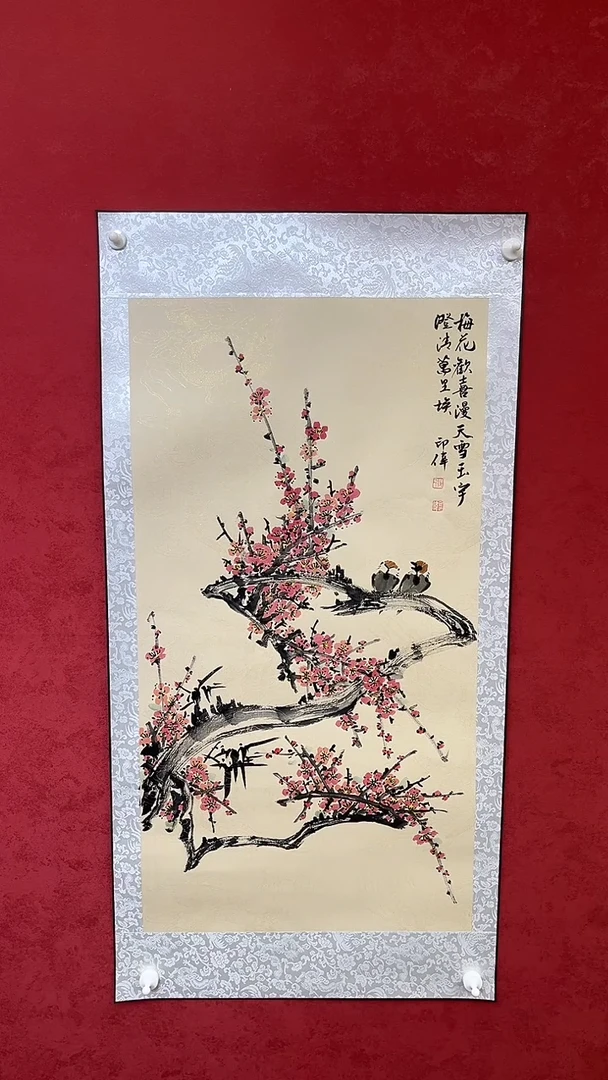 梅花歡喜漫天雪玉宇
澄清萬里埃
印偉